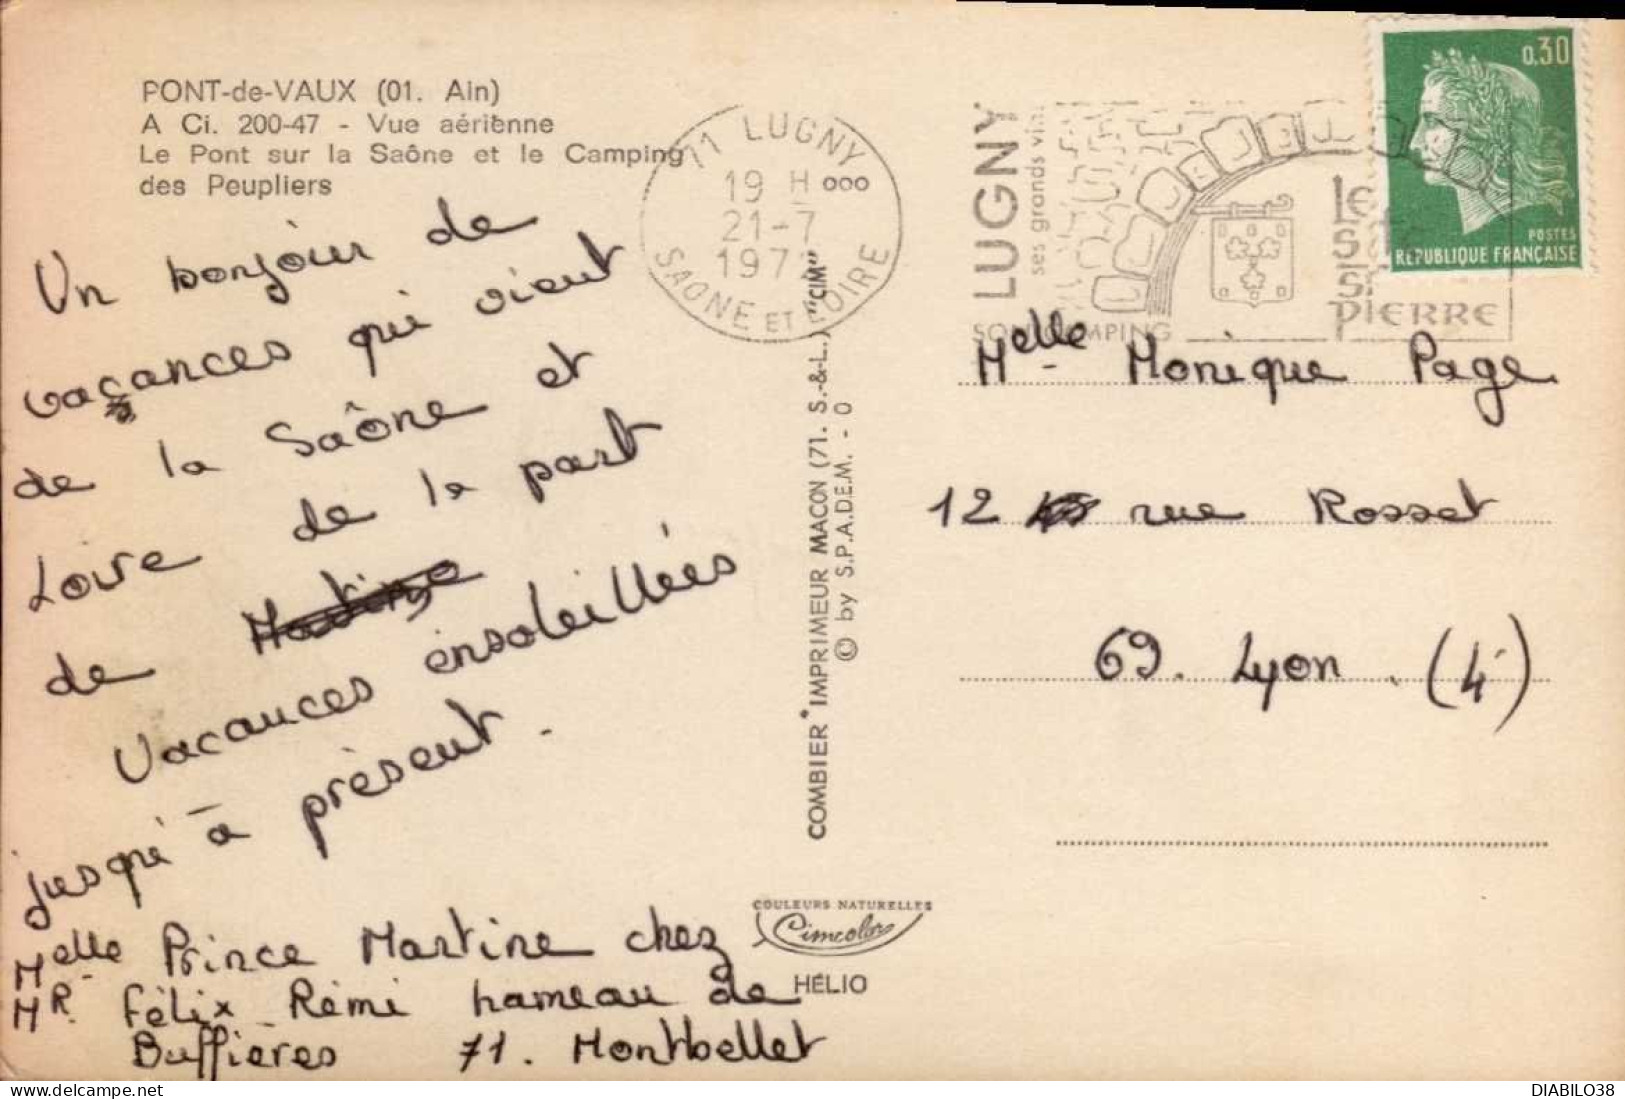 PONT-de-VAUX (01. Ain)
A Ci. 200-47 - Vue aérienne
Le Pont sur la Saône et le Camping
des Peupliers
Un bonjour de
vacances qui vient
de la Saône et
Loire de la part
de Martine
Vacances ensoleillées
jusqu'à présent.
Melle Prince Martine chez
MR. Félix Rémi hameau de
Buffières 71. Montbellet
71 LUGNY
19 H 000
21-7
197
SAONE ET LOIRE
LUGNY
ses grands vins
SON CAMPING
LE
ST
PIERRE
0.30
POSTES
REPUBLIQUE FRANÇAISE
COMBIER IMPRIMEUR MACON (71. S.-&-L.) "CIM"
© by S.P.A.D.E.M. - 0
Melle Monique Page
12 rue Rosset
69. Lyon. (4)
COULEURS NATURELLES
Cimcolor
HÉLIO
DIABILO38